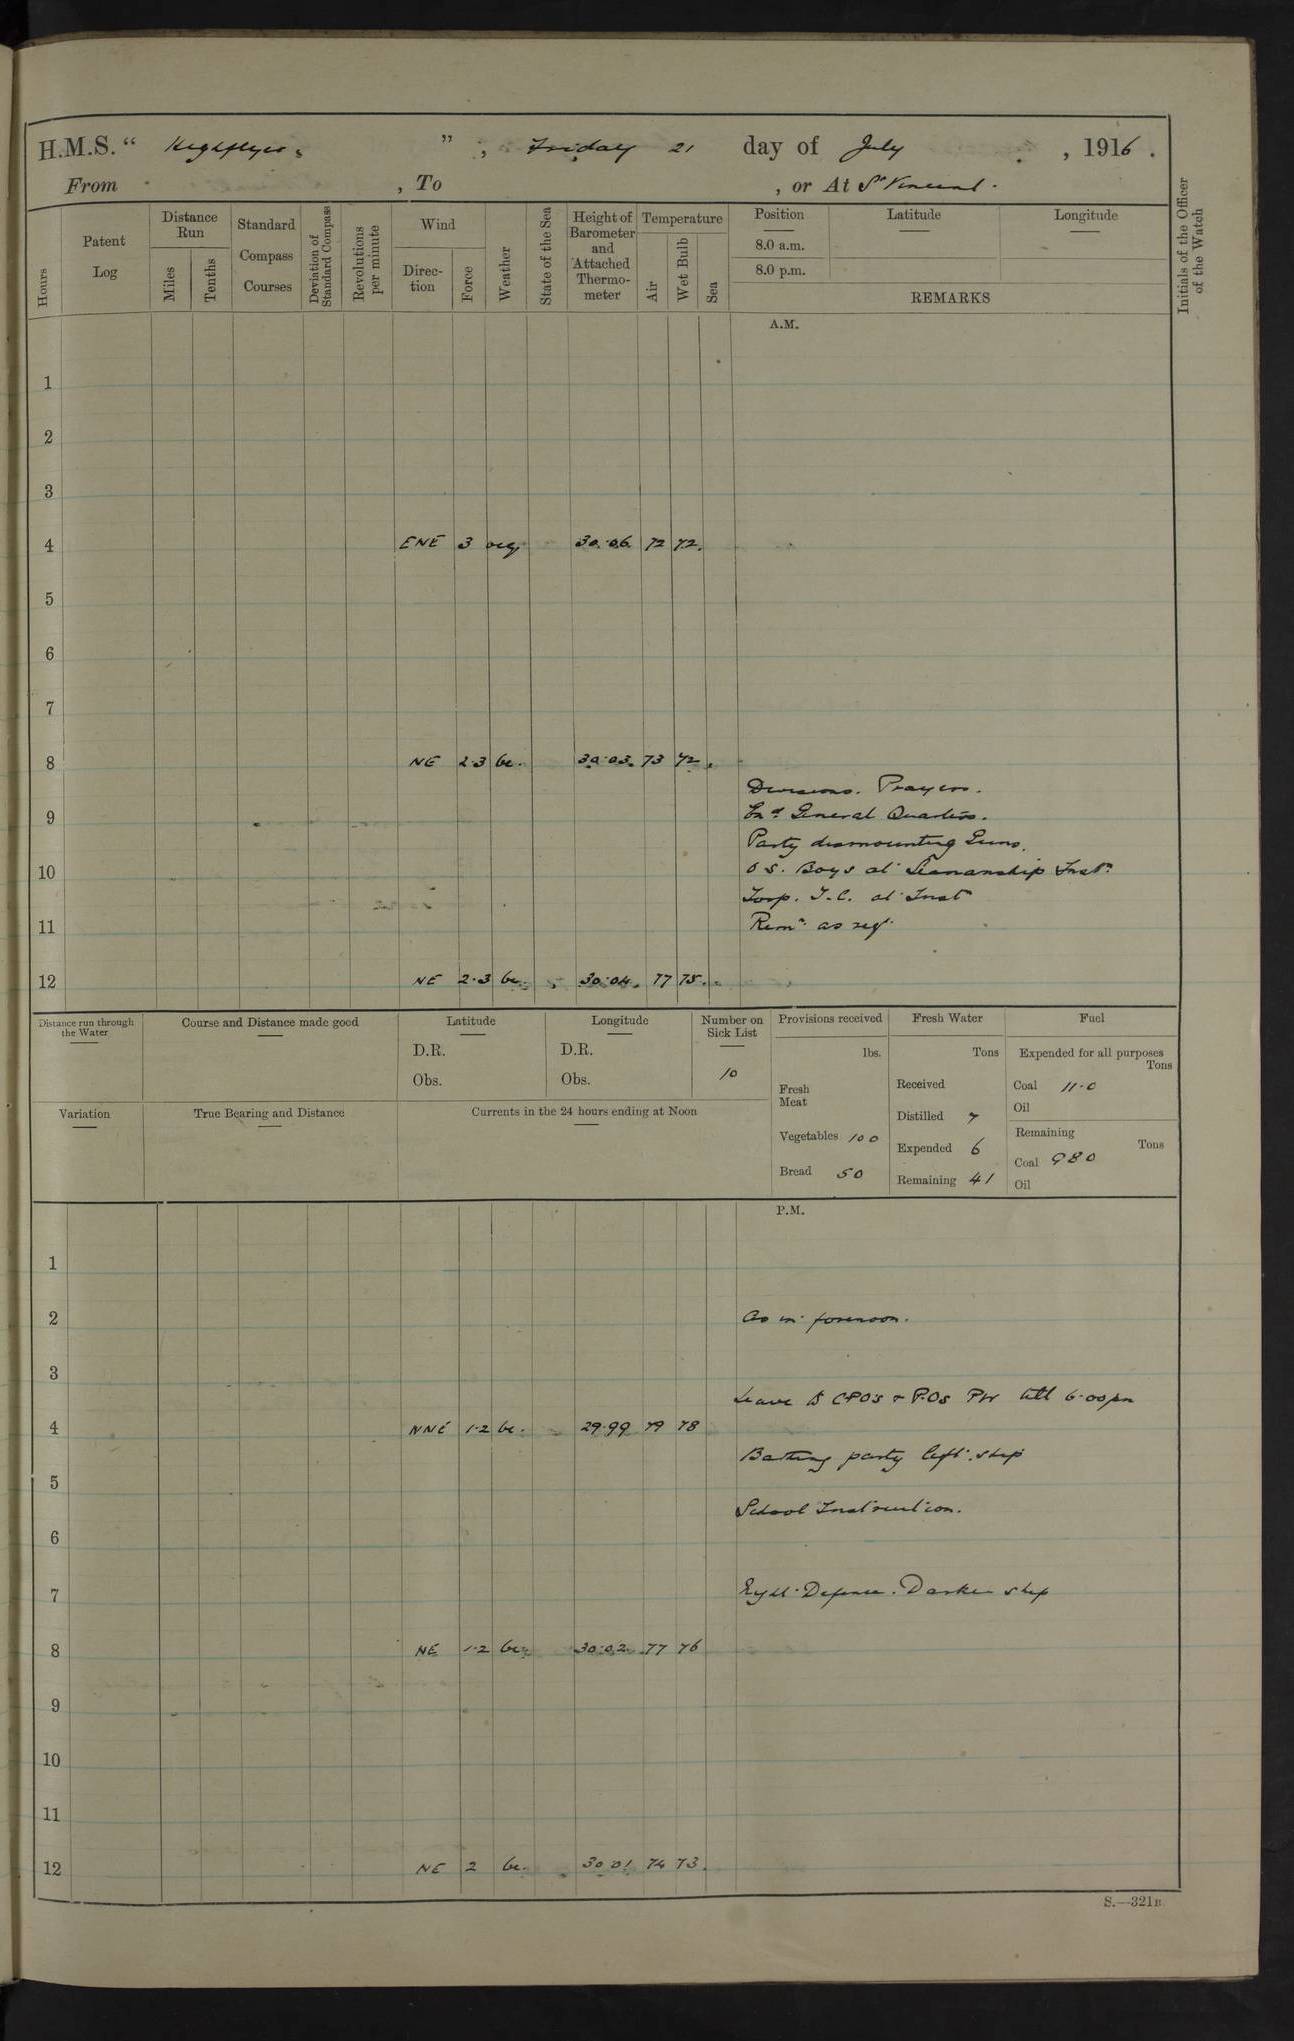 H.M.S. " Highflyer. " , Friday 21 day of July , 1916.
From , To , or At St Vincent.
Hours
Patent Log
Distance Run
Miles
Tenths
Standard Compass Courses
Deviation of Standard Compass
Revolutions per minute
Wind
Direction
Force
Weather
State of the Sea
Height of Barometer and Attached Thermometer
Temperature
Air
Wet Bulb
Sea
Position
8.0 a.m.
8.0 p.m.
Latitude
Longitude
REMARKS
Initials of the Officer of the Watch
A.M.
1
2
3
4 ENE 3 ocq 30.06 72 72.
5
6
7
8 NE 2.3 bc. 30.03. 73 72.
Divisions. Prayers.
9 Exd General Quarters.
Party dismounting Guns.
10 O.S. Boys at Seamanship Instn
Torp. T.C. at Instn
11 Remr as req.
12 NE 2.3 bc. 30.04. 77 75.
Distance run through the Water
Course and Distance made good
Latitude
D.R.
Obs.
Longitude
D.R.
Obs.
Number on Sick List
10
Provisions received
lbs.
Fresh Meat
Vegetables 100
Bread 50
Fresh Water
Tons
Received
Distilled 7
Expended 6
Remaining 41
Fuel
Expended for all purposes
Tons
Coal 11.0
Oil
Remaining
Tons
Coal 980
Oil
Variation
True Bearing and Distance
Currents in the 24 hours ending at Noon
P.M.
1
2 As in forenoon.
3
Leave to CPO's & P.Os PW till 6.00pm
4 NNE 1.2 bc. 29.99 79 78
Bathing party left ship
5
School Instruction.
6
7 Night Defence. Darken ship
8 NE 1.2 bc. 30.02 77 76
9
10
11
12 NE 2 bc. 30.01 74 73.
S.—321B.